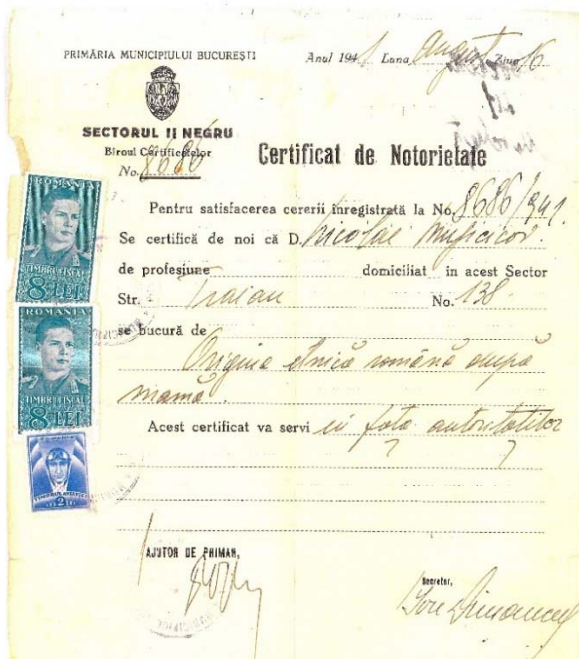 PRIMĂRIA MUNICIPIULUI BUCUREȘTI
Anul 1941 Luna August Ziua 16
SECTORUL II NEGRU
Biroul Certificatelor
No. 8686
Certificat de Notorietate
Pentru satisfacerea cererii înregistrată la No. 8686/941.
Se certifică de noi că D. Nicolae
de profesiune domiciliat in acest Sector
Str. Traian No. 138.
se bucură de
Origina etnică română după
mamă.
Acest certificat va servi in fata autoritatilor
ROMANIA
TIMBRU FISCAL
8 LEI
ROMANIA
TIMBRU FISCAL
8 LEI
2
AJUTOR DE PRIMAR,
Secretar,